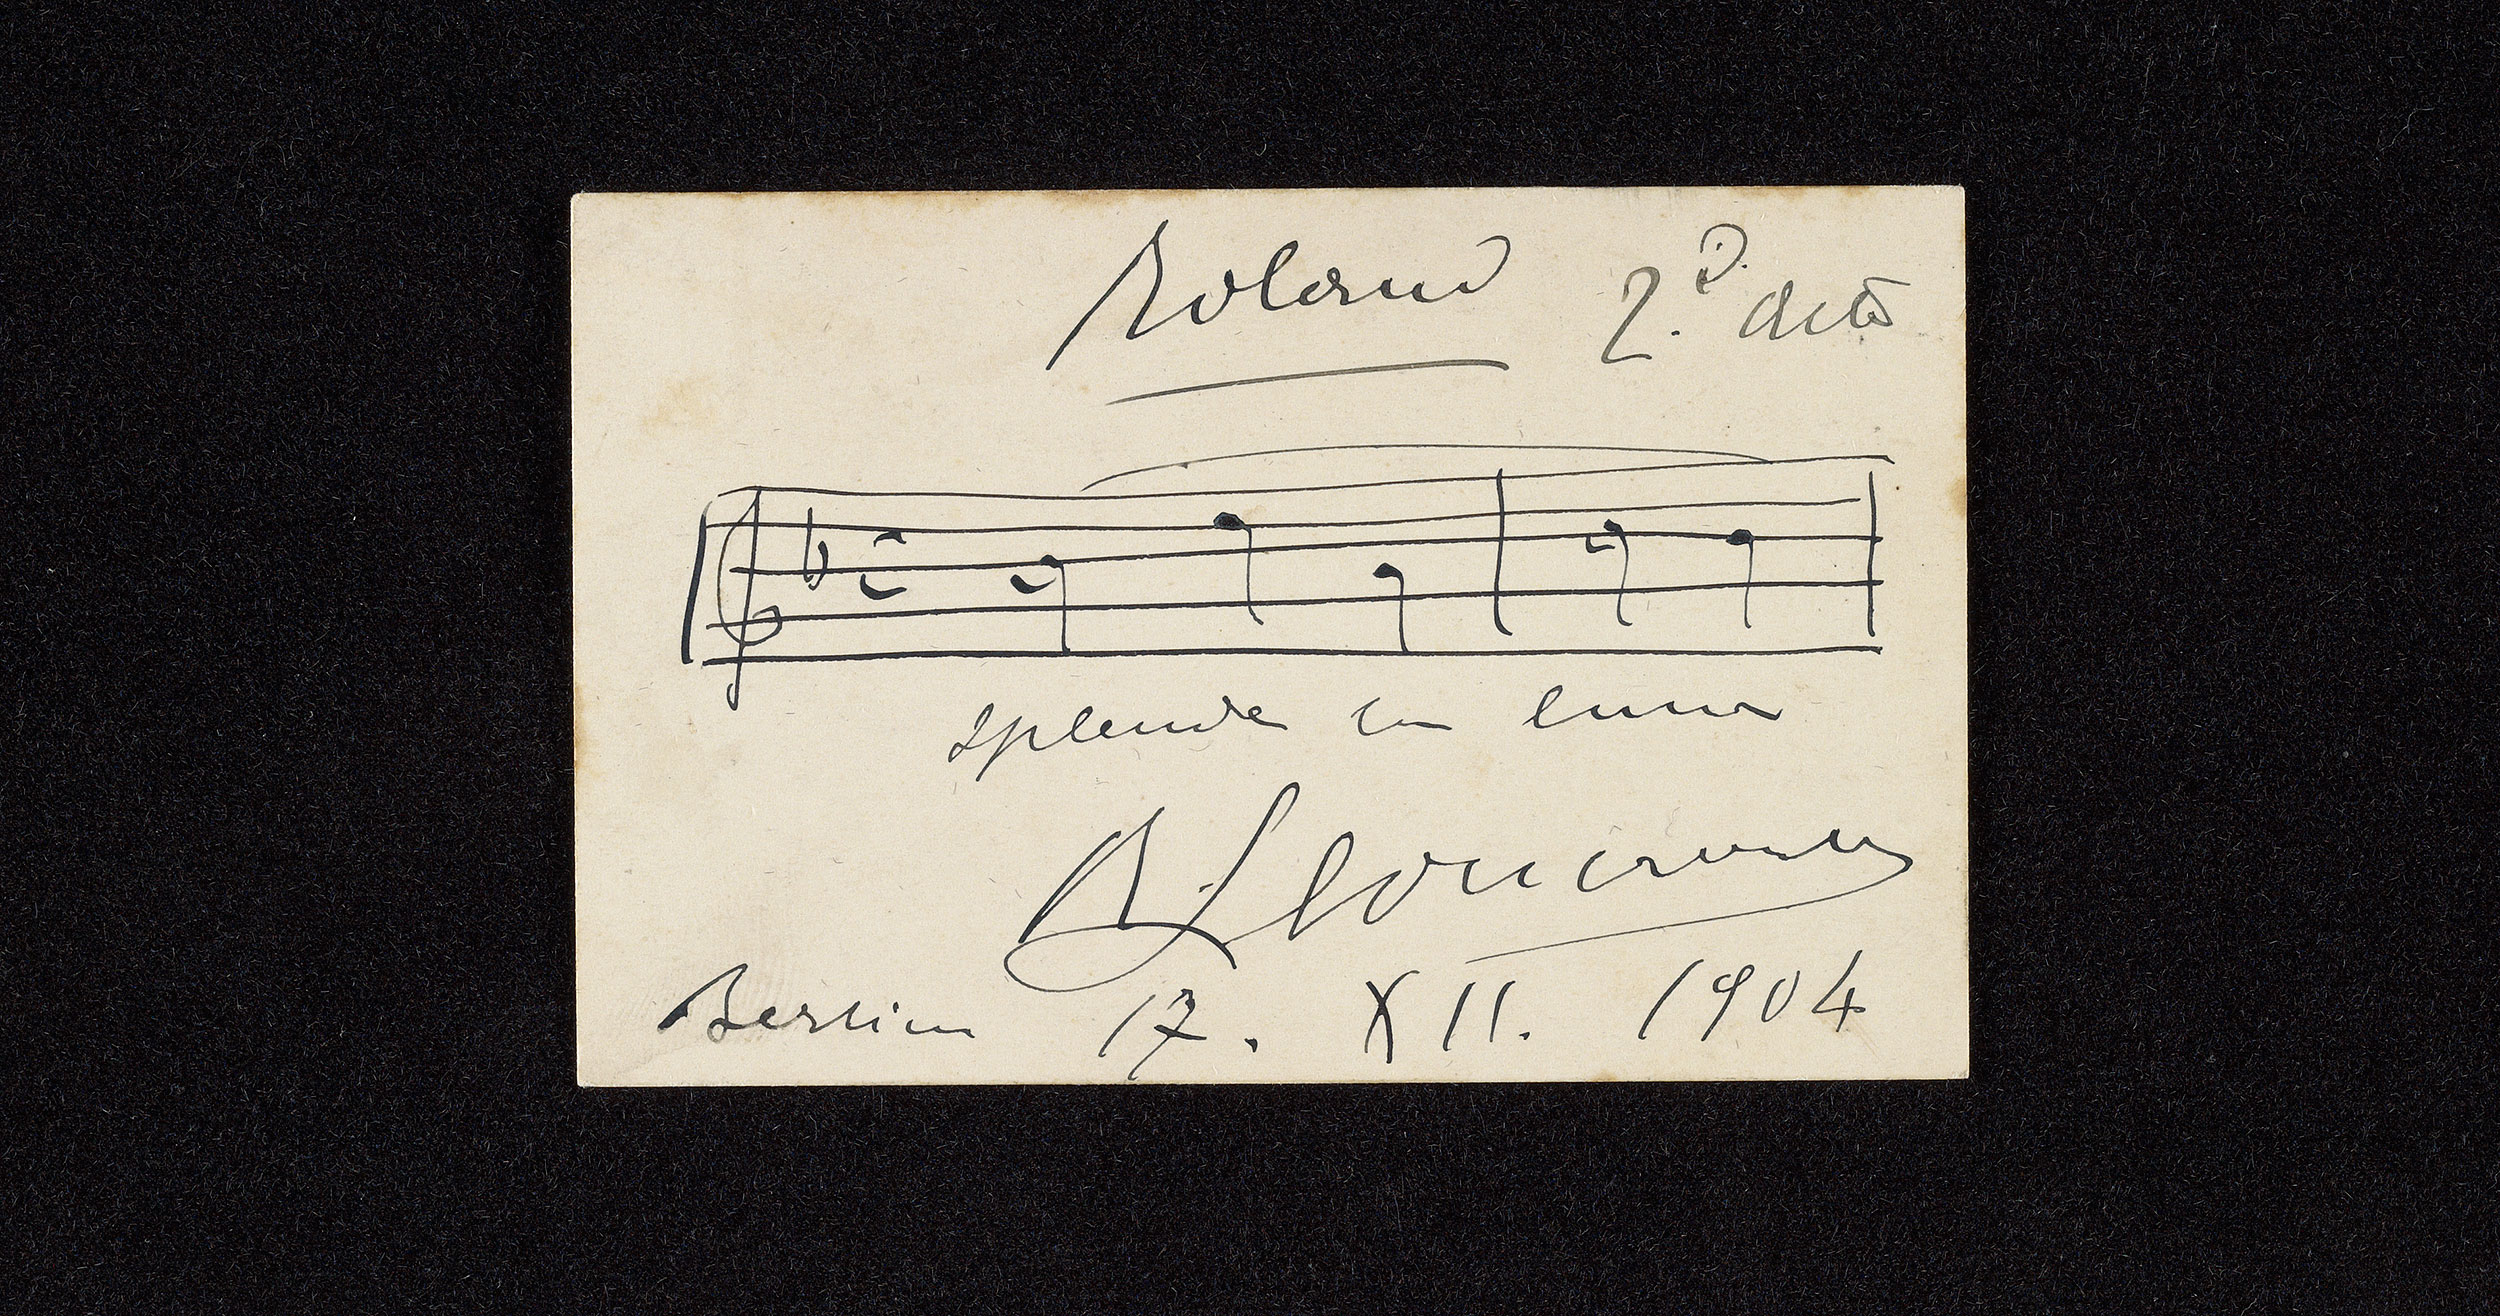 Roland 2.º atto
splende la luna
R Leoncavallo
Berlin 17. XII. 1904